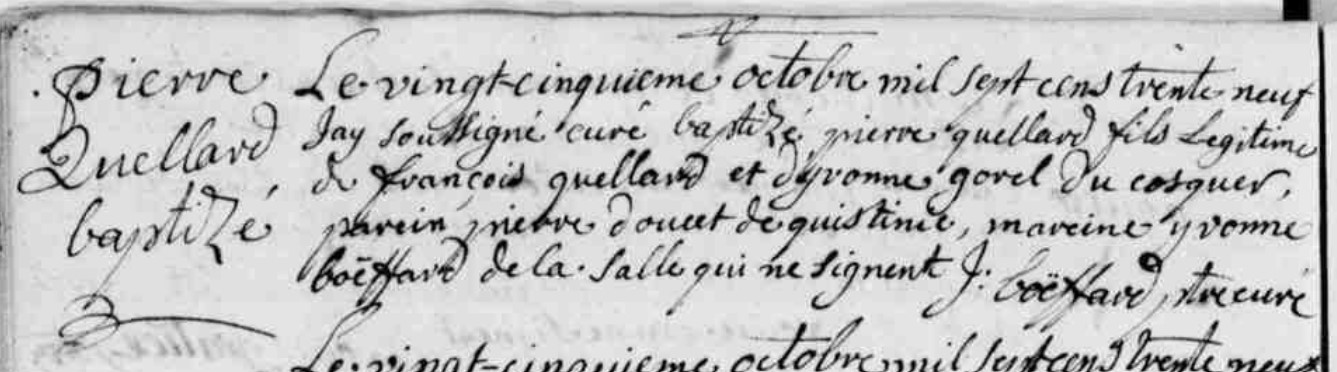 Pierre
Quellard
baptizé
Le vingt-cinquieme octobre mil sept cens trente neuf
Jay soussigné curé baptizé pierre quellard fils Legitime
de françois quellard et d'yvonne gorel du cosquer,
parein pierre doucet de quistinic, mareine yvonne
boëffard de la salle qui ne signent J. boëffard ptre curé
Le vingt-cinquieme octobre mil sept cens trente neuf